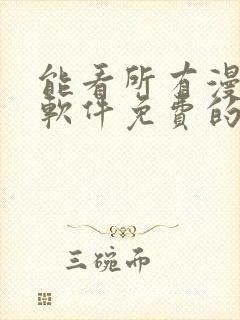 能看所有漫
軟件免費的
三碗而